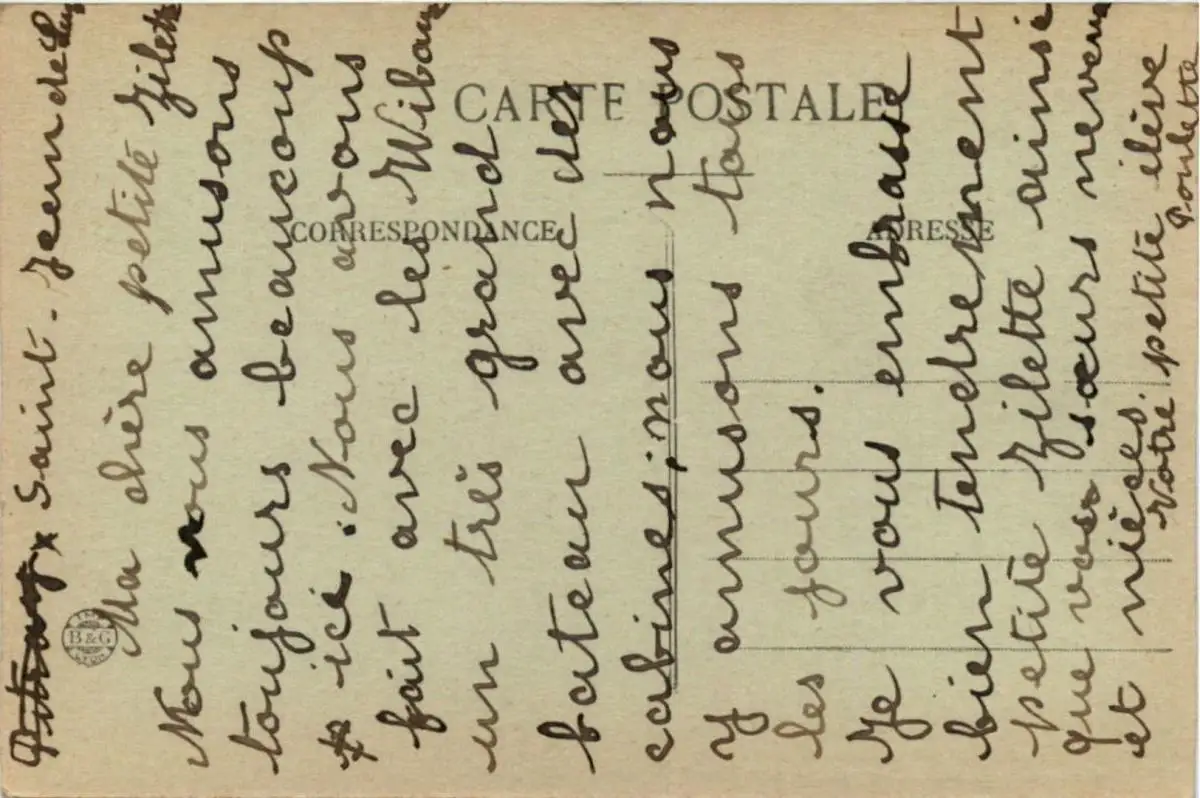 CARTE POSTALE
CORRESPONDANCE
ADRESSE
B & G
LYON
Saint - Jean de Luz
Ma chère petite Zilette
Nous nous amusons
toujours beaucoup
ici. Nous avons
fait avec les Wibaux
un très grand
bateau avec des
cabines; nous nous
y amusons tous
les jours.
Je vous enbrasse
bien tendrement
petite Zilette ainsi
que vos soeurs neveux
et nièces.
Votre petite élève
Poulette